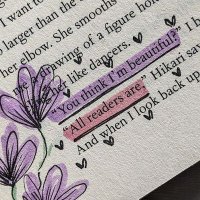 larger than the
her elbow. She smooths
drawing of a figure
like dangers.
"You think I'm beautiful?"
"All readers are," Hikari
And when I look back up